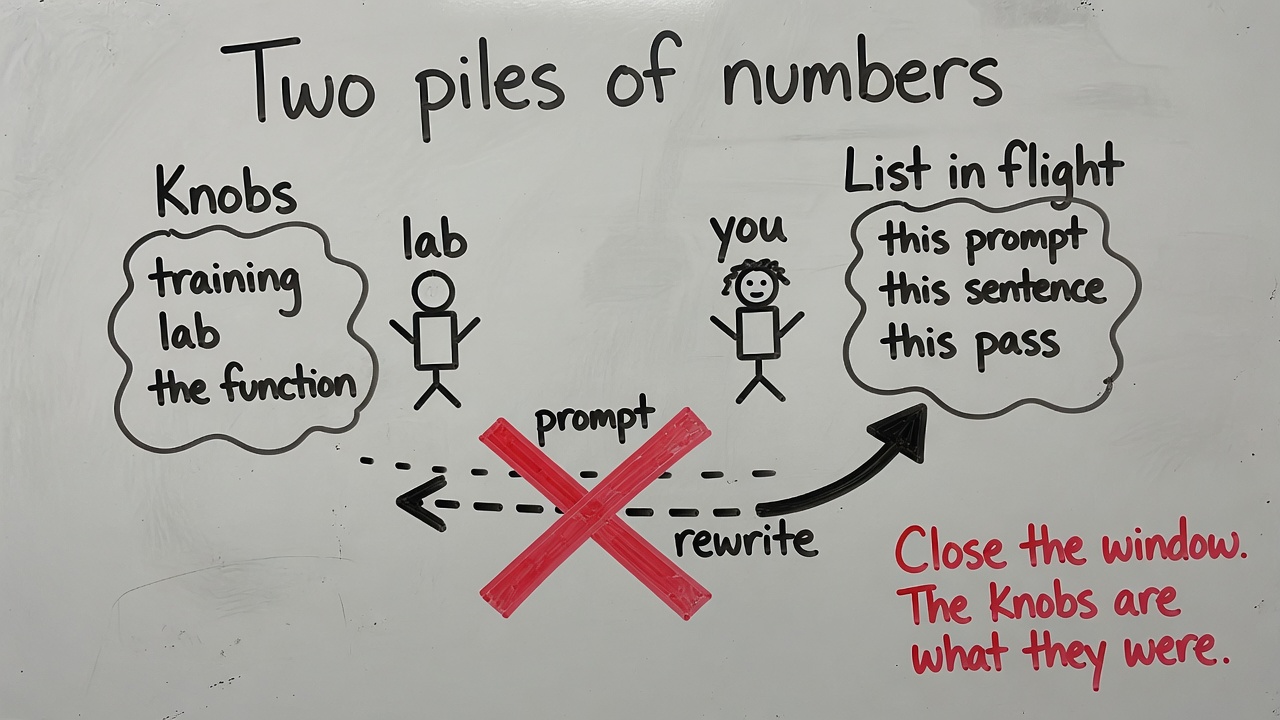 Two piles of numbers
Knobs
training
lab
the function
lab
you
List in flight
this prompt
this sentence
this pass
prompt
rewrite
Close the window.
The Knobs are
what they were.